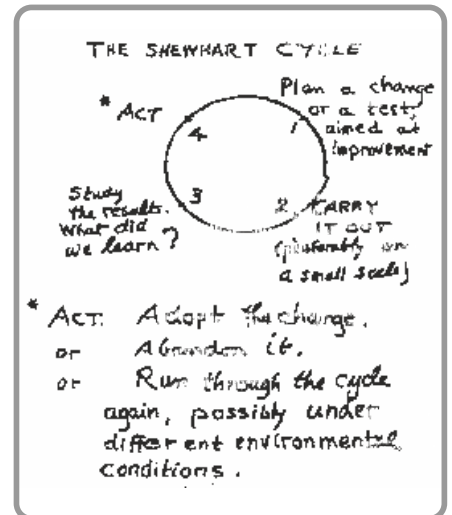 THE SHEWHART CYCLE
Plan a change
or a test,
aimed at
improvement
* ACT
4
1
3
Study
the results.
What did
we learn?
2. CARRY
IT OUT
(preferably on
a small scale)
* ACT. Adopt the change.
or Abandon it.
or Run through the cycle
again, possibly under
different environmental
conditions.